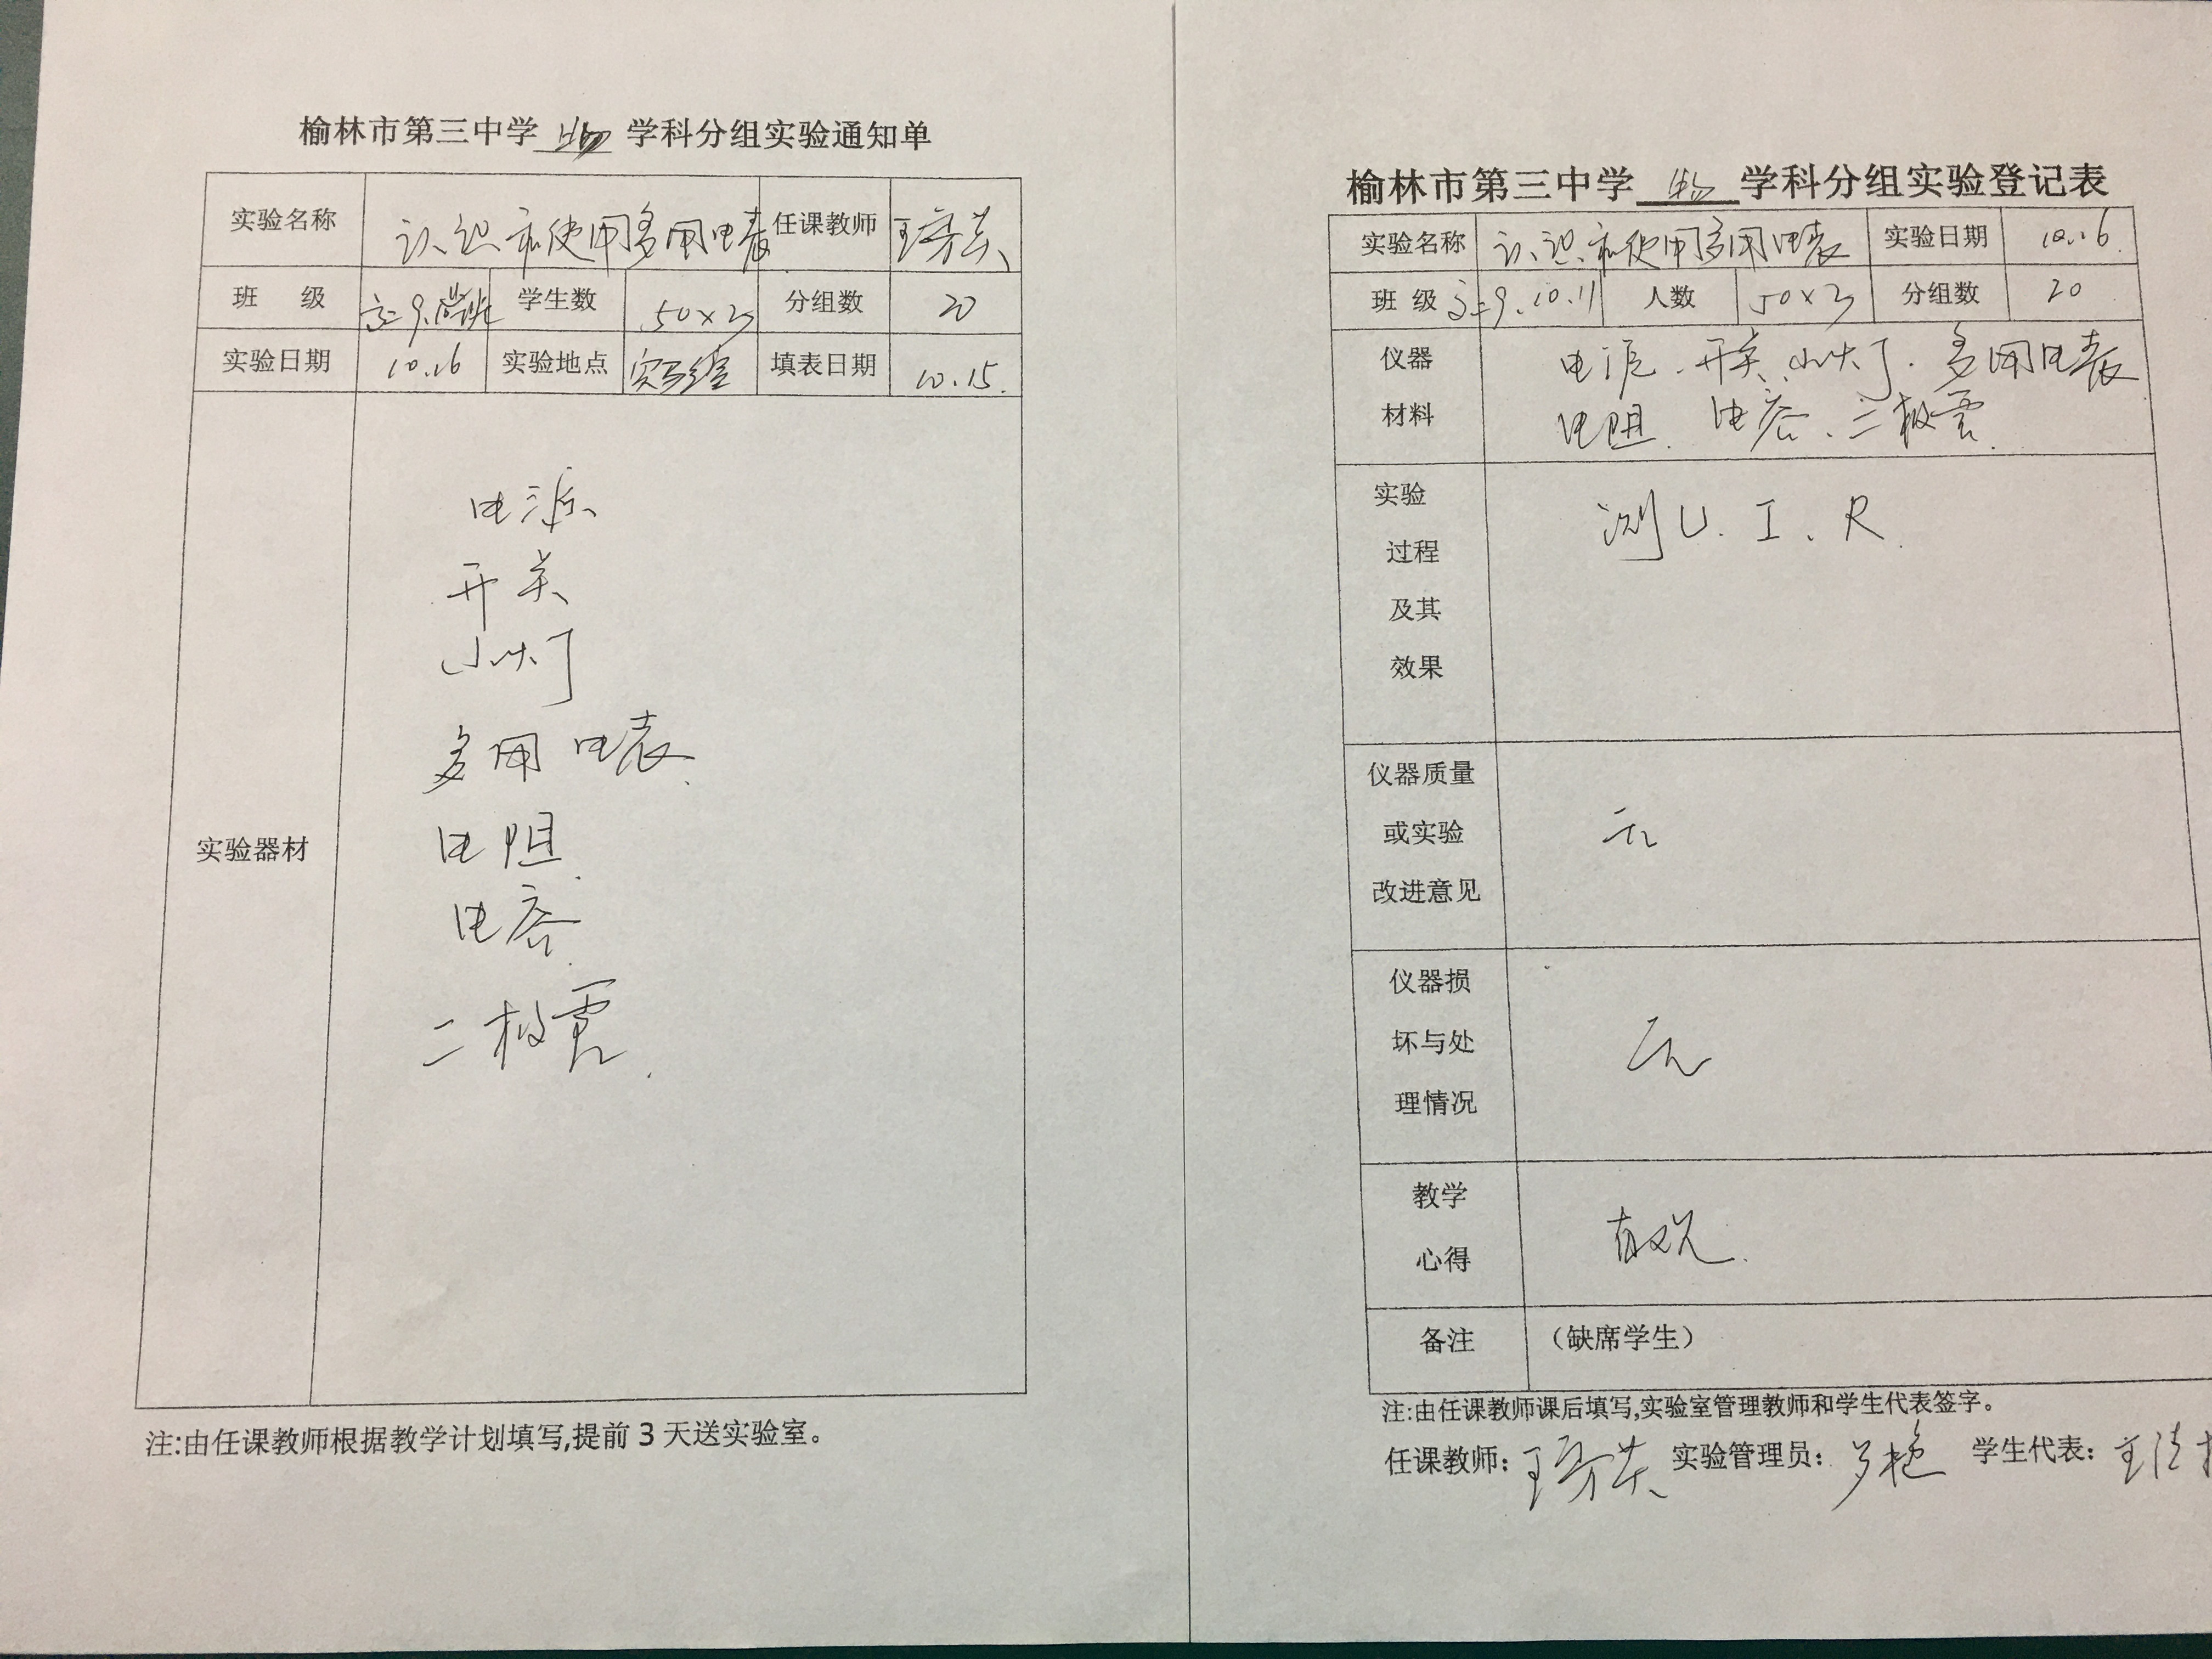 榆林市第三中学 物 学科分组实验通知单
实验名称 认识和使用多用电表 任课教师 王
班 级 高二9、 学生数 50×3 分组数 20
实验日期 10.16 实验地点 实验室 填表日期 10.15.
实验器材
电源
开关
小灯
多用电表
电阻
电容
二极管
注:由任课教师根据教学计划填写,提前3天送实验室。
榆林市第三中学 物 学科分组实验登记表
实验名称 认识和使用多用电表 实验日期 10.16
班 级 高二9.10.11 人数 50×3 分组数 20
仪器 电源、开关、小灯、多用电表
材料 电阻、电容、二极管
实验 测U、I、R
过程
及其
效果
仪器质量
或实验 无
改进意见
仪器损
坏与处 无
理情况
教学 直观
心得
备注 (缺席学生)
注:由任课教师课后填写,实验室管理教师和学生代表签字。
任课教师: 王 实验管理员: 学生代表: 王